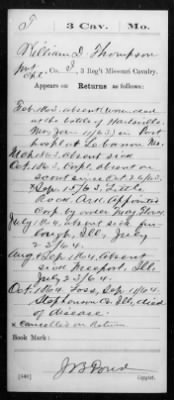 T
3 Cav.
Mo.
William D. Thompson
Pvt
Cpl. Co. I, 3 Reg't Missouri Cavalry.
Appears on
Returns as follows:
absent, wounded
at the battle of Hartville
Mo, Jan 11/63, in Post
hospl at Lebanon Mo.
absent sick
Oct 1863, Cpl, absent on
scout since Oct 26/63
Sep 15/63, Little
Rock, Ark. Appointed
Corp by order
July 1864, absent sick fur-
lough, Ill, July
23/64.
Aug & Sep 1864, absent
sick Freeport, Ill,
July 23/64.
Oct 1864, Loss, Sep 1864,
Stephenson Co Ill, died
of disease.
x Cancelled on Return
Book Mark:
(546)
Copyist.